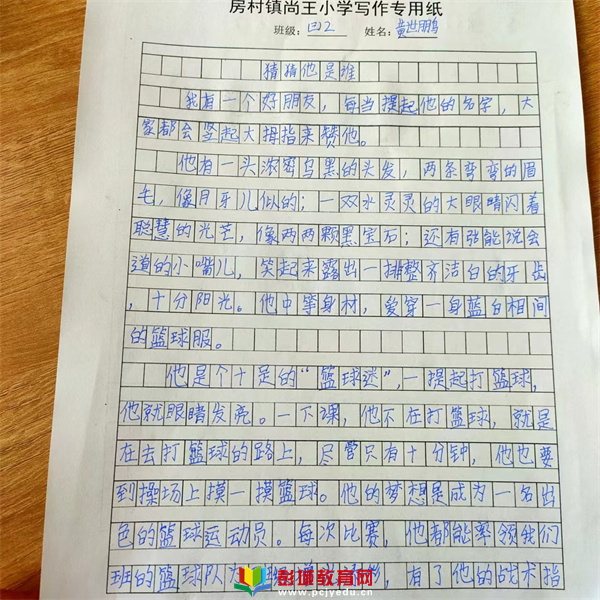 房村镇尚王小学写作专用纸
班级: 四2 姓名: 黄世鹏
猜猜他是谁
我有一个好朋友，每当提起他的名字，大
家都会竖起大拇指来赞他。
他有一头浓密乌黑的头发，两条弯弯的眉
毛，像月牙儿似的；一双水灵灵的大眼睛闪着
聪慧的光芒，像两两颗黑宝石；还有张能说会
道的小嘴儿，笑起来露出一排整齐洁白的牙齿
，十分阳光。他中等身材，爱穿一身蓝白相间
的篮球服。
他是个十足的“篮球迷”，一提起打篮球，
他就眼睛发亮。一下课，他不在打篮球，就是
在去打篮球的路上，尽管只有十分钟，他也要
到操场上摸一摸篮球。他的梦想是成为一名出
色的篮球运动员。每次比赛，他都能率领我们
班的篮球队为，有了他的战术指
彭城教育网
www.pcjyedu.cn